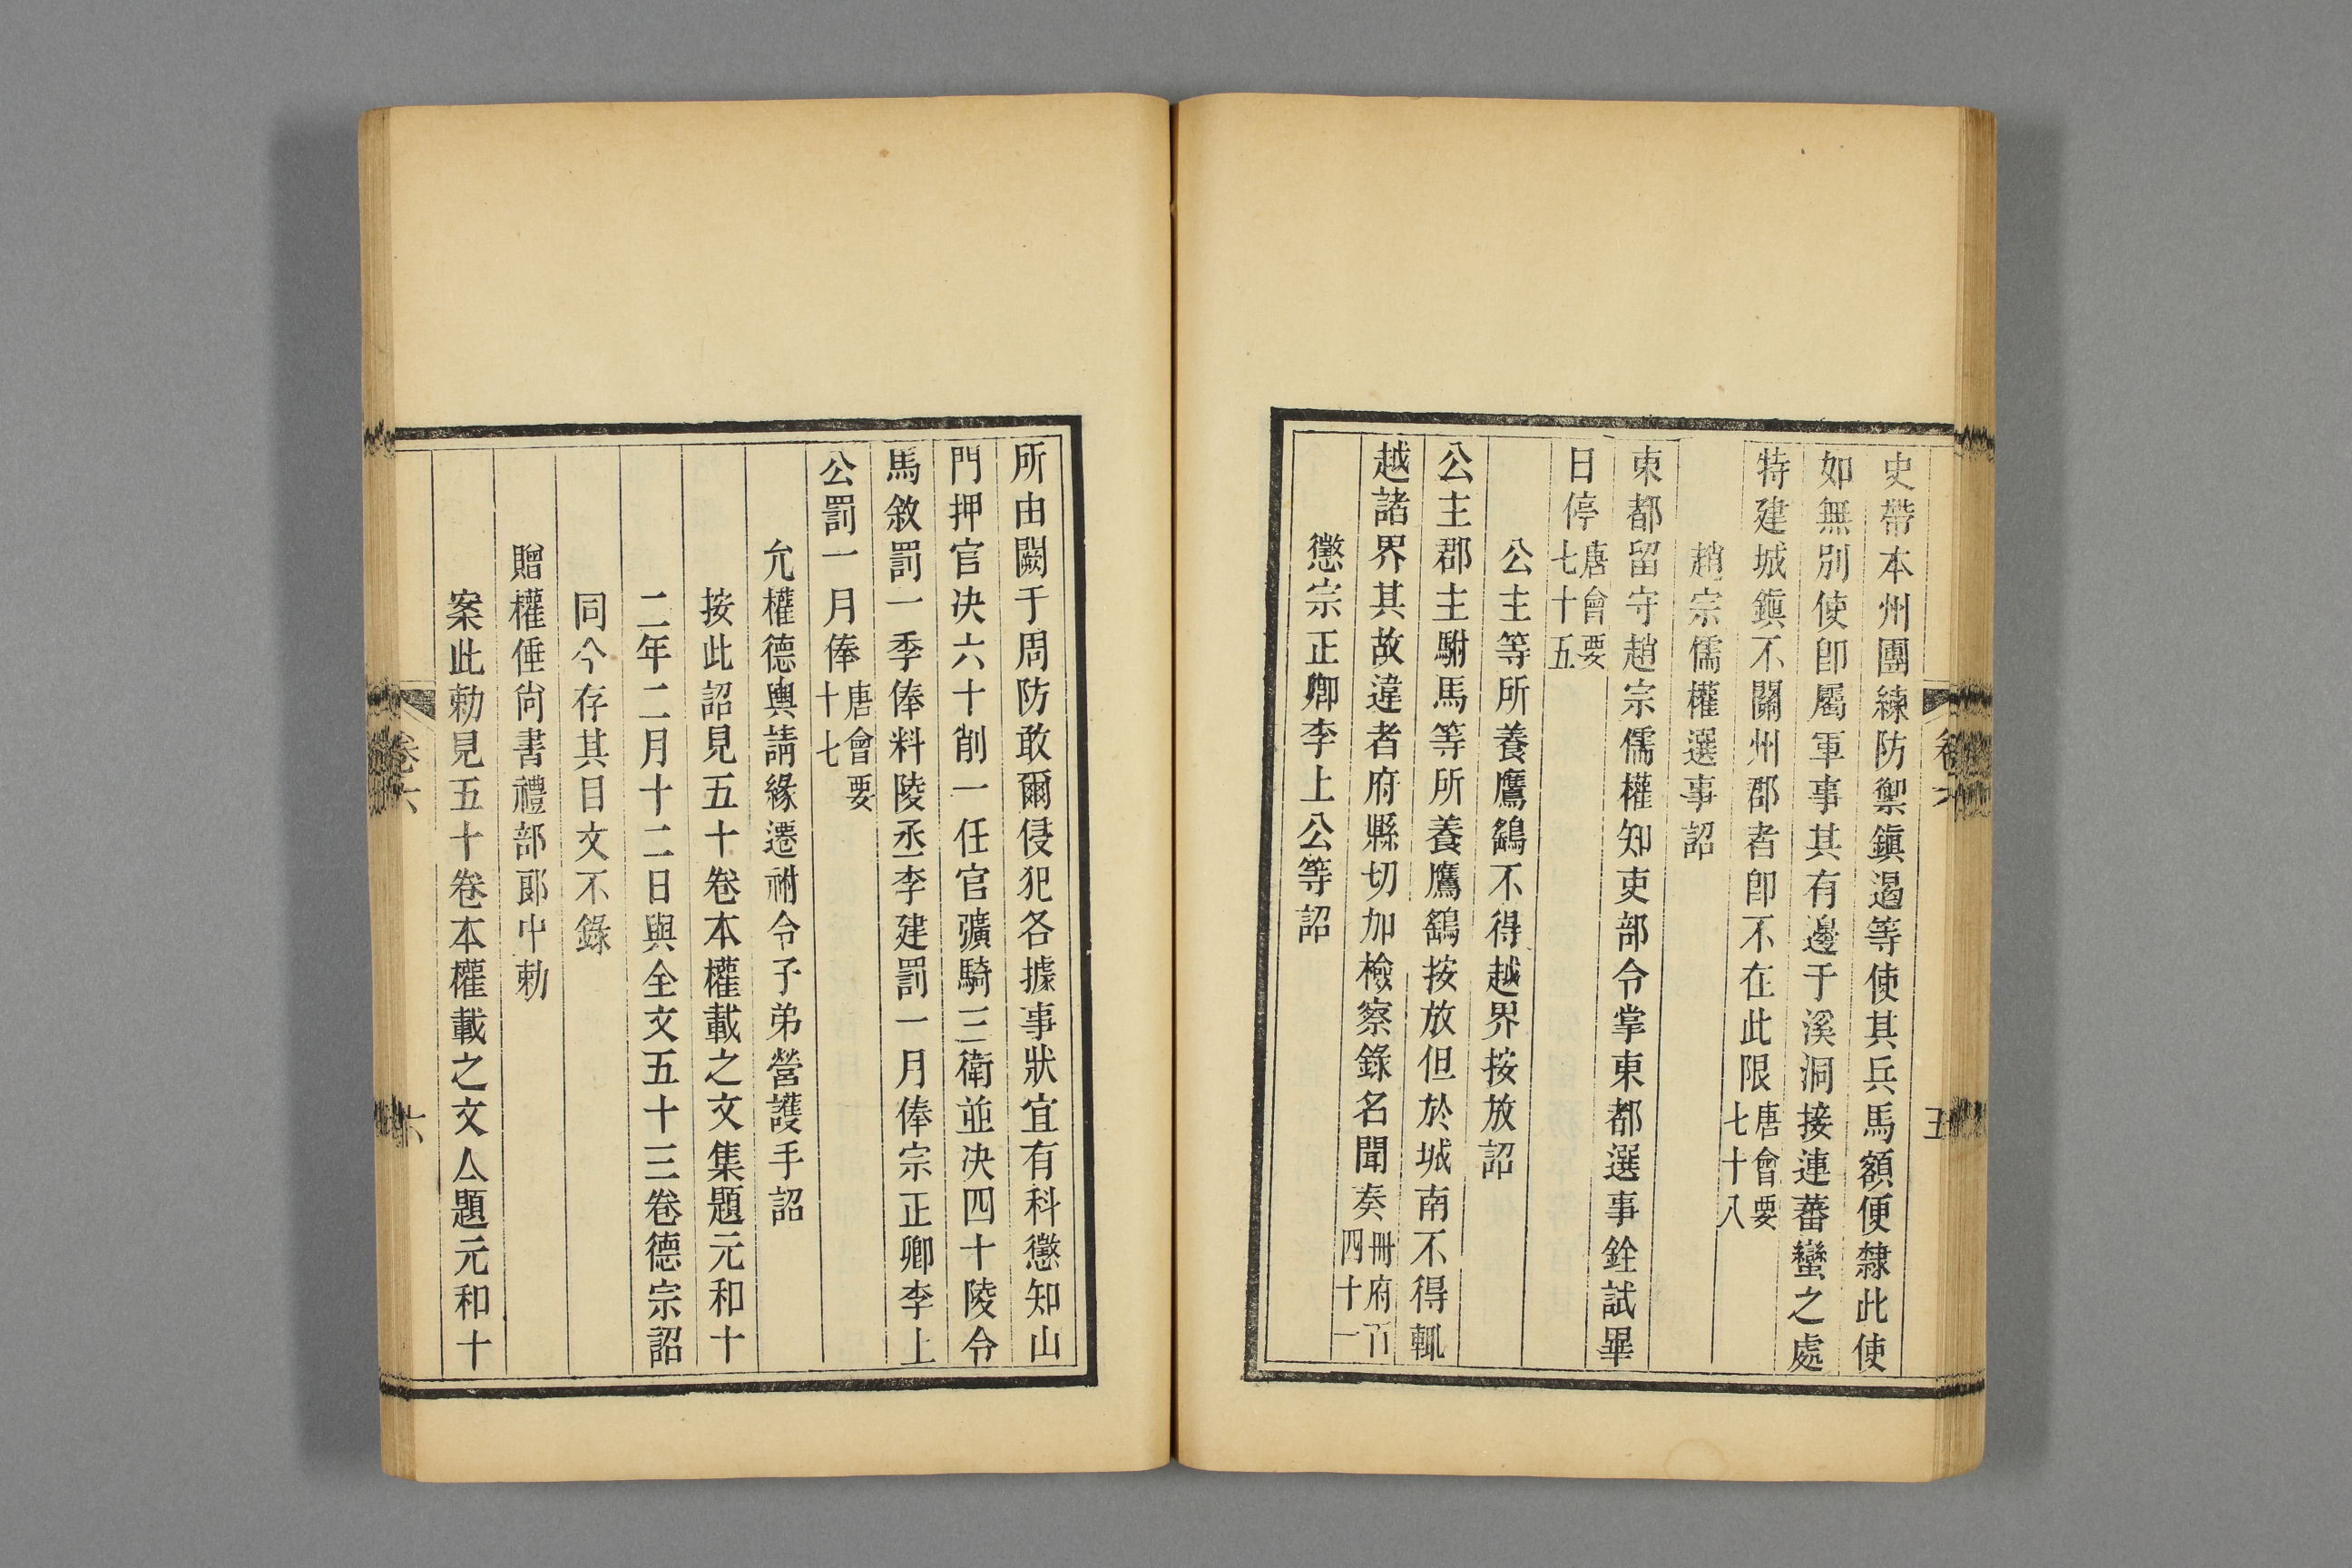 史帶本州團練防禦鎮遏等使其兵馬額便隸此使
如無別使卽屬軍事其有邊于溪洞接連蕃蠻之處
特建城鎮不關州郡者卽不在此限唐會要
七十八
趙宗儒權選事詔
東都留守趙宗儒權知吏部令掌東都選事銓試畢
日停唐會要
七十五
公主等所養鷹鷂不得越界按放詔
公主郡主駙馬等所養鷹鷂按放但於城南不得輒
越諸界其故違者府縣切加檢察錄名聞奏冊府百
四十一
懲宗正卿李上公等詔
五
所由闕于周防敢爾侵犯各據事狀宜有科懲知山
門押官决六十削一任官彍騎三衛並决四十陵令
馬敘罰一季俸料陵丞李建罰一月俸宗正卿李上
公罰一月俸唐會要
十七
允權德輿請緣遷祔令子弟營護手詔
按此詔見五十卷本權載之文集題元和十
二年二月十二日與全文五十三卷德宗詔
同今存其目文不錄
贈權倕尙書禮部郞中勅
案此勅見五十卷本權載之文亼題元和十
卷六
六